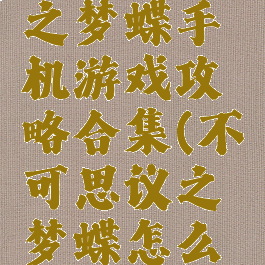 之梦蝶手
机游戏攻
略合集(不
可思议之
梦蝶怎么